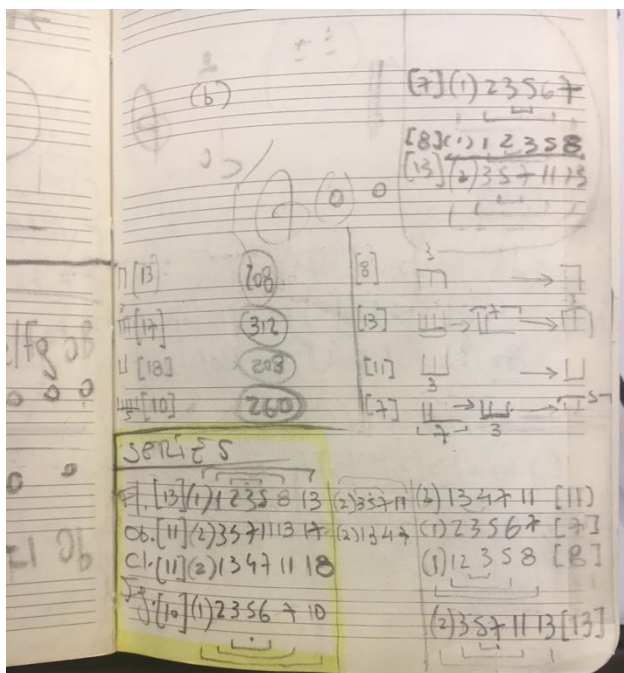 (b)
[7](1)23567
[8](1)12358
[13](2)3571113
[13] 208 [8] 3
[17] 312 [13] 7
[18] 208 [11] 3
[10] 260 [7] 7 3 5
SERIES
Fl.[13](1)1235813 (2)35711 (2)134711 [11]
Ob.[11](2)3571113 17 (2)1347 (1)23567 [7]
Cl.[11](2)134711 18 (1)12358 [8]
Fg.[10](1)2356 7 10 (2)3571113[13]